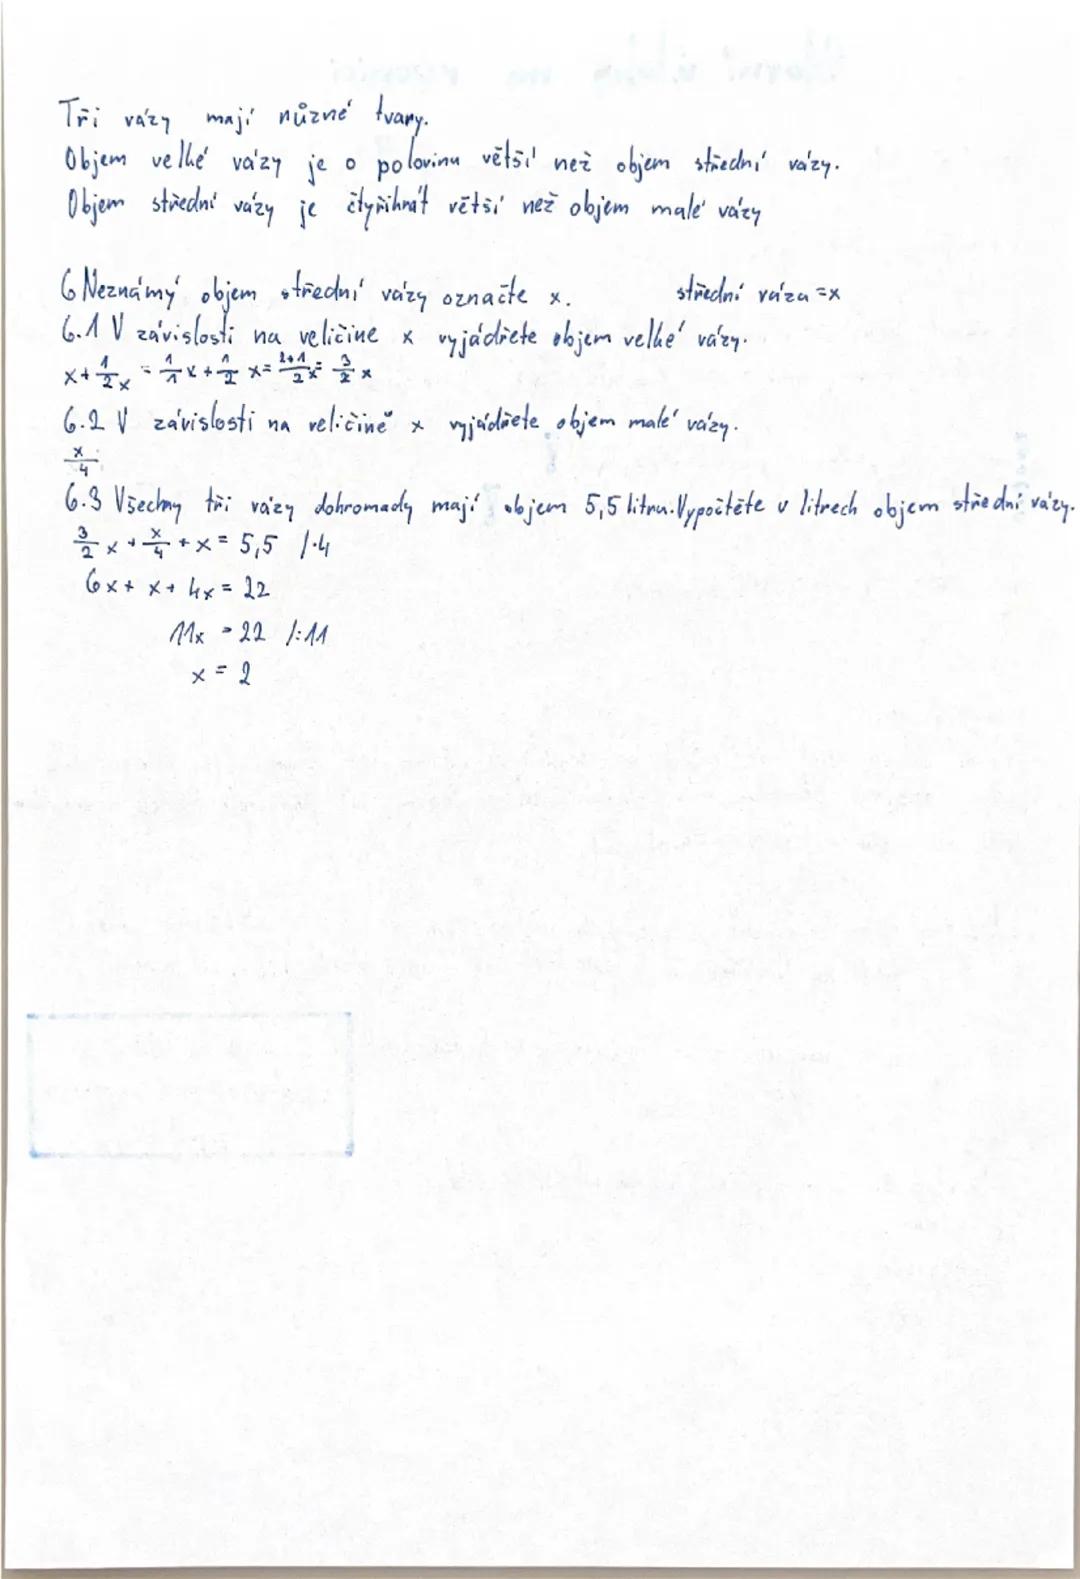 Tři vázy mají různé tvary.
Objem velké vázy je o polovinu větší než objem střední vázy.
Objem střední vázy je čtyřihrát větší než objem malé vázy
6 Neznámý objem střední vázy označte x. střední váza = x
6.1 V závislosti na veličine x vyjádřete objem velké vázy.
x + 1/2 x = 1/1 x + 1/2 x = 2+1/2 x = 3/2 x
6.2 V závislosti na veličině x vyjádřete objem malé vázy.
x/4
6.3 Všechny tři vázy dohromady mají objem 5,5 litru. Vypočtěte v litrech objem střední vázy.
3/2 x + x/4 + x = 5,5 /·4
6x + x + 4x = 22
11x = 22 /:11
x = 2